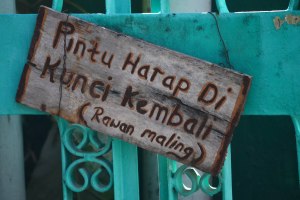 Pintu Harap Di
Kunci Kembali
(Rawan maling)